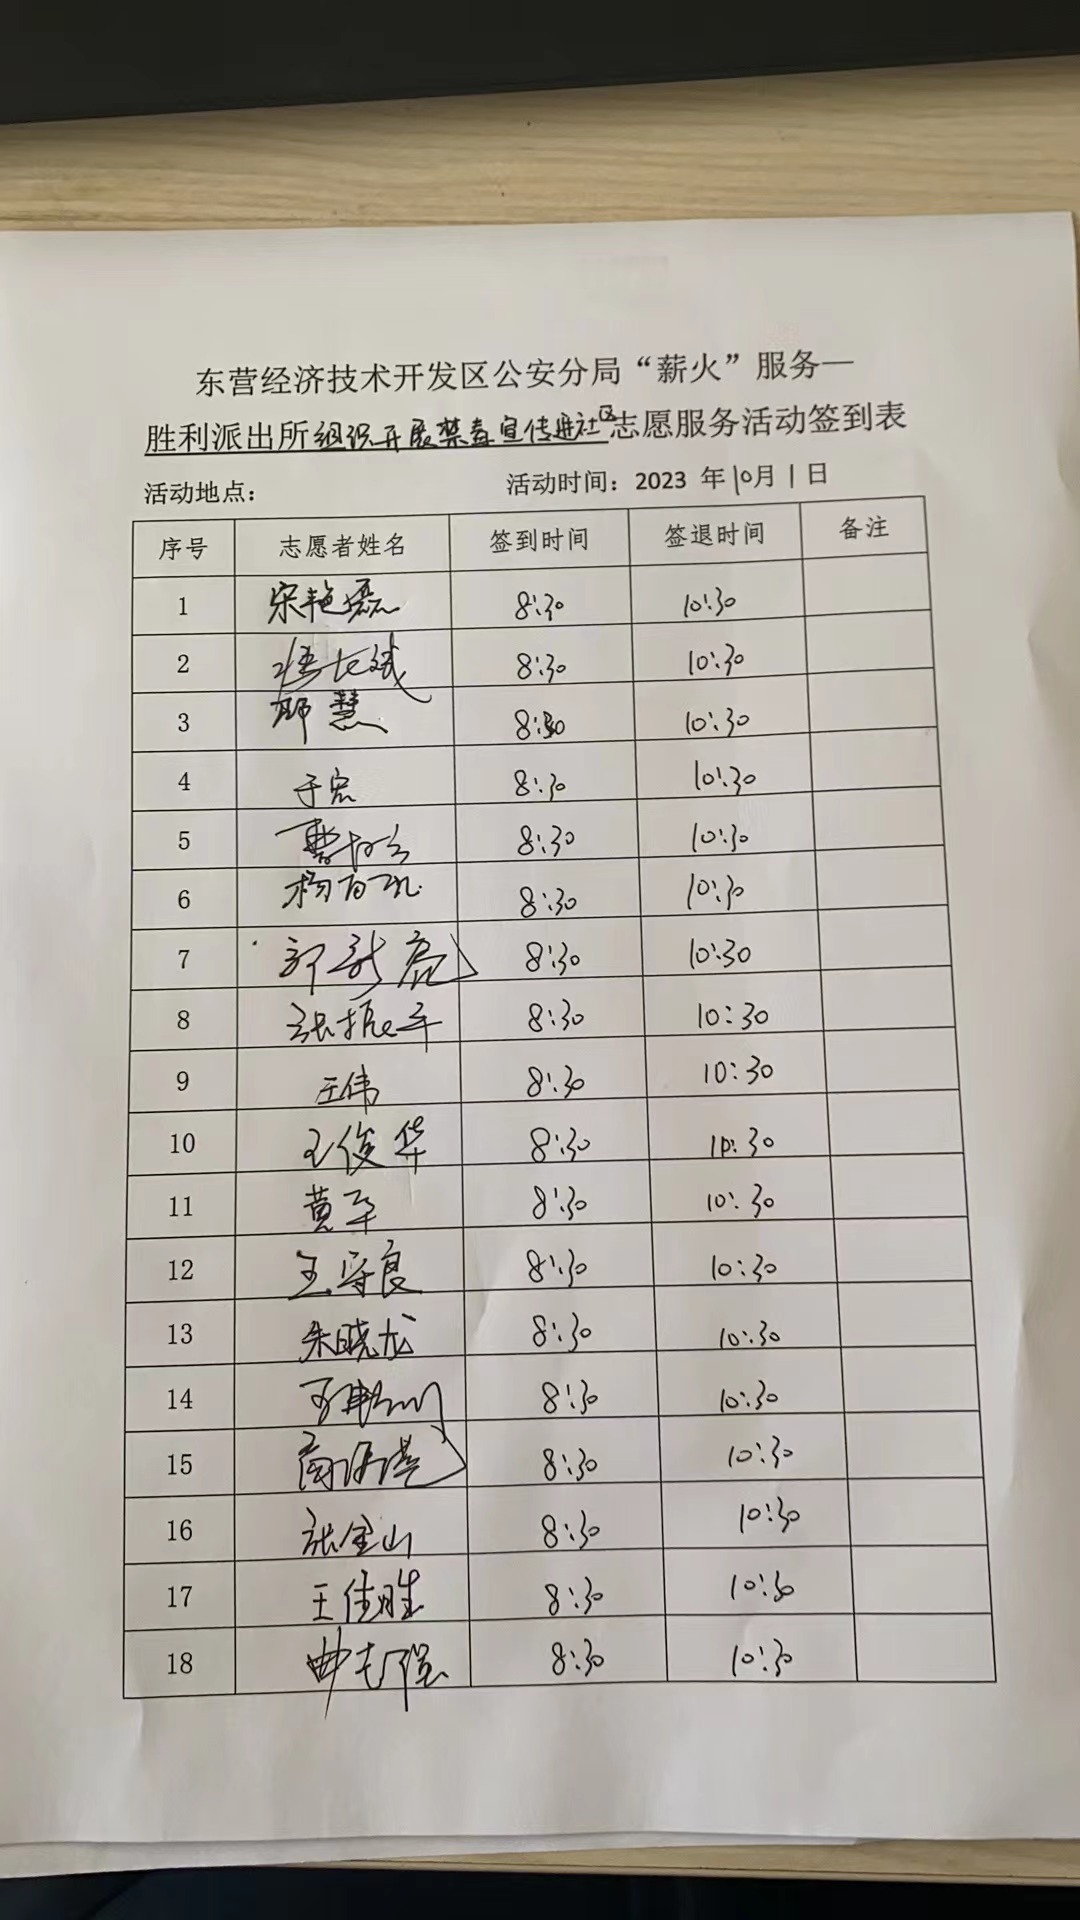 东营经济技术开发区公安分局“薪火”服务—
胜利派出所组织开展禁毒宣传进社区志愿服务活动签到表
活动地点： 活动时间：2023 年10月1日
序号 志愿者姓名 签到时间 签退时间 备注
1 宋艳磊 8:30 10:30
2 8:30 10:30
3 邢慧 8:30 10:30
4 于宏 8:30 10:30
5 曹 8:30 10:30
6 杨百 8:30 10:30
7 郭新亮 8:30 10:30
8 张振军 8:30 10:30
9 王伟 8:30 10:30
10 王俊华 8:30 10:30
11 黄军 8:30 10:30
12 王守良 8:30 10:30
13 朱晓龙 8:30 10:30
14 8:30 10:30
15 商 8:30 10:30
16 张金山 8:30 10:30
17 王佳胜 8:30 10:30
18 曲 8:30 10:30